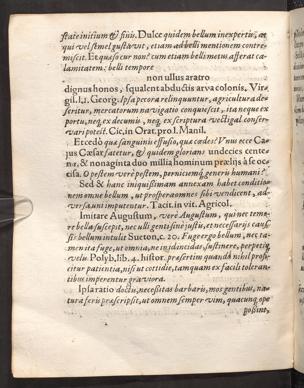 state initium & finis. Dulce quidem bellum inexpertis, at
qui vel semel gustavit, etiam ad belli mentionem contre-
miscit. Et quasi cur non? cum etiam belli metus afferat ca-
lamitatem: belli tempore
non ullus aratro
dignus honos, squalent abductis arva colonis. Vir-
gil. l. 1. Georg. Ipsa pecora relinquuntur, agricultura de-
seritur, mercatorum navigatio conquiescit, ita neque ex
portu, neq; ex decumis, neq; ex scriptura vectigal conser-
vari potest. Cic. in Orat. pro l. Manil.
Et cedò quæ sanguinis effusio, quæ cædes? Vnus ecce Ca-
jus Cæsar fatetur, & quidem glorians undecies cente-
na, & nonaginta duo millia hominum prælijs à se oc-
cisa. O pestem verè pestem, perniciemq; generis humani?
Sed & hanc iniquissimam annexam habet conditio-
nem omne bellum, ut prospera omnes sibi vendicent, ad-
versa uni imputentur. Tacit. in vit. Agricol.
Imitare Augustum, verè Augustum, qui nec teme-
rè bella suscepit, nec ulli genti sine justis, et necessarijs caus-
sis bellum intulit Sueton. c. 20. Fuge ergo bellum, nec ta-
men ita fuge, ut omnia, ne in id incidas, sustinere, perpetiq;
velis. Polyb. lib. 4. histor. præsertim quando nihil profi-
citur patientia, nisi ut cottidie, tamquam ex facili toleran-
tibus imperentur graviora.
Ipsa ratio doctis, necessitas barbaris, mos gentibus, na-
tura feris præscripsit, ut omnem semper vim, quacunq; ope
possint,